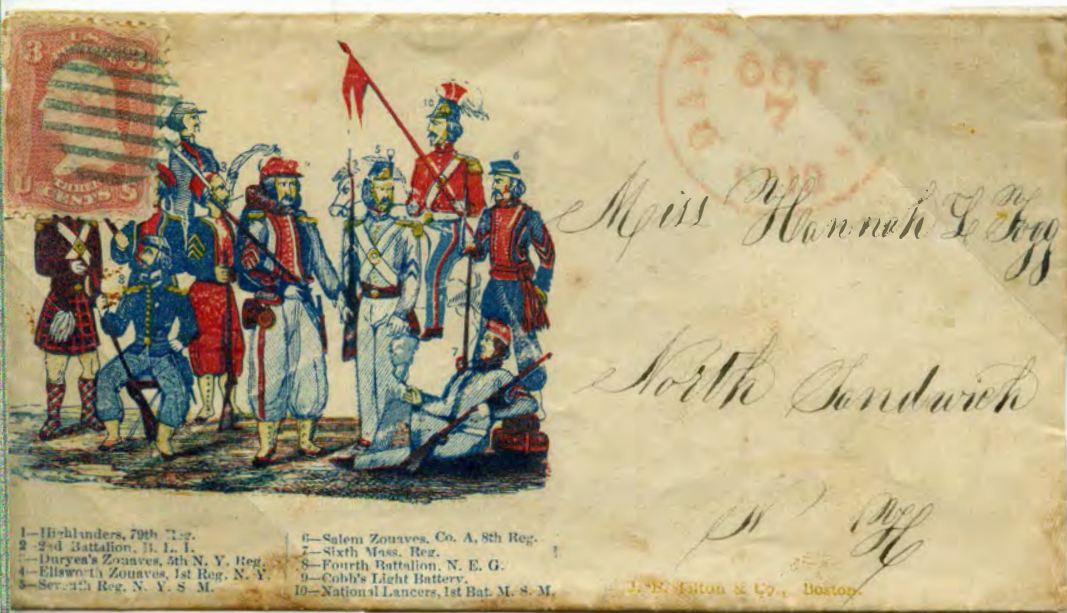 3 U.S. 3
THREE
CENTS
DANV
OCT
7
OHIO
10
5
6
8
7
Miss Hannah L Fogg
North Sandwich
N H
1—Highlanders, 79th Reg.
2—2nd Battalion, B. L. I.
3—Duryea's Zouaves, 5th N. Y. Reg.
4—Ellsworth Zouaves, 1st Reg. N. Y.
5—Seventh Reg. N. Y. S M.
6—Salem Zouaves, Co. A, 8th Reg.
7—Sixth Mass. Reg.
8—Fourth Battalion, N. E. G.
9—Cobb's Light Battery.
10—National Lancers, 1st Bat. M. S. M.
J. E. Tilton & Co., Boston.